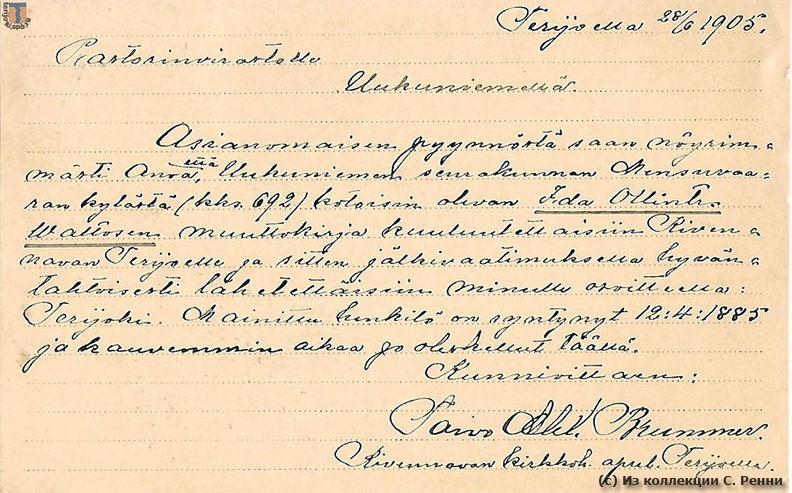 Terijoella 28/6 1905.
Pastorinvirastolle
Uukuniemellä.
Asianomaisen pyynnöstä saan nöyrim-
mästi anoa, että Uukuniemen seurakunnan Mensuvaa-
ran kylästä (kks. 692) kotoisin olevan Ida Ollint.
Wattosen muuttokirja kuulutettaisiin Kiven-
navan Terijoelle ja sitten jälkivaatimuksella hyvän-
tahtoisesti lähetettäisiin minulle osoitteella:
Terijoki. Mainittu henkilö on syntynyt 12:4:1885
ja kauvemmin aikaa jo oleskellut täällä.
Kunnioittaen:
Toivo Brummer.
Kivennavan kirkkoh. apul. Terijoella.
(c) Из коллекции С. Ренни
terijoki.spb.ru